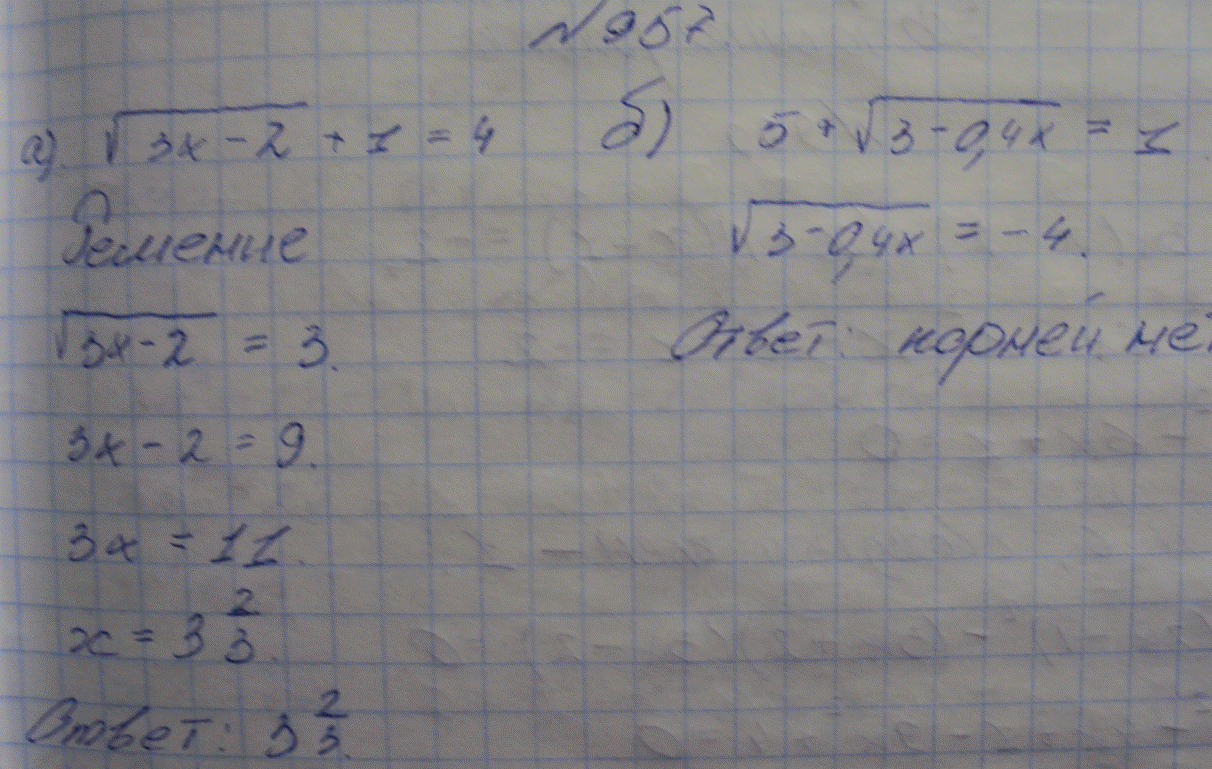 №957.
а) √3x-2 + 1 = 4
Решение
√3x-2 = 3.
3x-2 = 9.
3x = 11.
x = 3 2/3.
Ответ: 3 2/3.
б) 5+√3-0,4x = 1.
√3-0,4x = -4.
Ответ: корней не